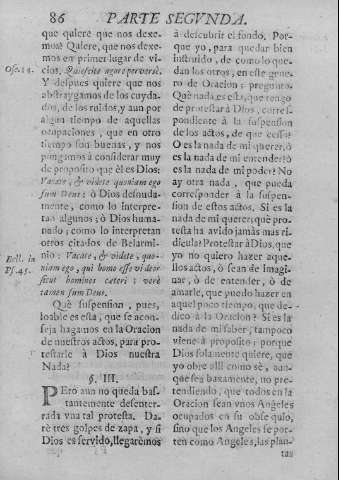 86 PARTE SEGVNDA.
que quierè que nos dexe-
mos? Quiere, que nos dexe-
mos en primer lugar de vi-
Ose. 14. cios, Quiescite agere perversè.
Y despues quiere que nos
abstraygamos de los cuyda-
dos, de los ruidos, y aun por
algun tiempo de aquellas
ocupaciones, que en otro
tiempo son buenas, y nos
pongamos à considerar muy
de proposito que èl es Dios:
Vacate, & videte quoniam ego
sum Deus: ò Dios desnuda-
mente, como lo interpre-
tan algunos; ò Dios huma-
nado; como lo interpretan
otros citados de Belarmi-
Bell. in nio: Vacate, & videte, quo-
Ps. 45. niam ego, qui homo esse videor
sicut homines cæteri: verè
tamen sum Deus.
Què suspension, pues,
loable es esta, que se acon-
seja hagamos en la Oracion
de nuestros actos, para pro-
testarle à Dios nuestra
Nada?
§. III.
PEro aun no queda bas-
tantemente desenter-
rada vna tal protesta. Da-
rè tres golpes de zapa, y si
Dios es servido, llegarèmos
à descubrir el fondo. Por-
que yo, para quedar bien
instruido, de como lo que-
dan los otros, en este gene-
ro de Oracion; pregunto:
Què nada es esta, que tengo
de protestar à Dios, corres-
pondiente à la suspension
de los actos, de que cesso?
O es la nada de mi querer, ò
es la nada de mi entender, ò
es la nada de mi poder? No
ay otra nada, que pueda
corresponder à la suspen-
sion de estos actos. Si es la
nada de mi querer; què pro-
testa ha avido jamàs mas ri-
dicula? Protestar à Dios, que
yo no quiero hazer aque-
llos actos, ò sean de imagi-
nar, ò de entender, ò de
amarle, que puedo hazer en
aquel poco tiempo, que de-
dico à la Oracion? Si es la
nada de mi saber, tampoco
viene à proposito; porque
Dios solamente quiere, que
yo obre alli como sè, aun-
que sea baxamente, no pre-
tendiendo, que todos en la
Oracion sean vnos Angeles
ocupados en su obsequio,
sino que los Angeles se por-
ten como Angeles, las plan-
tas